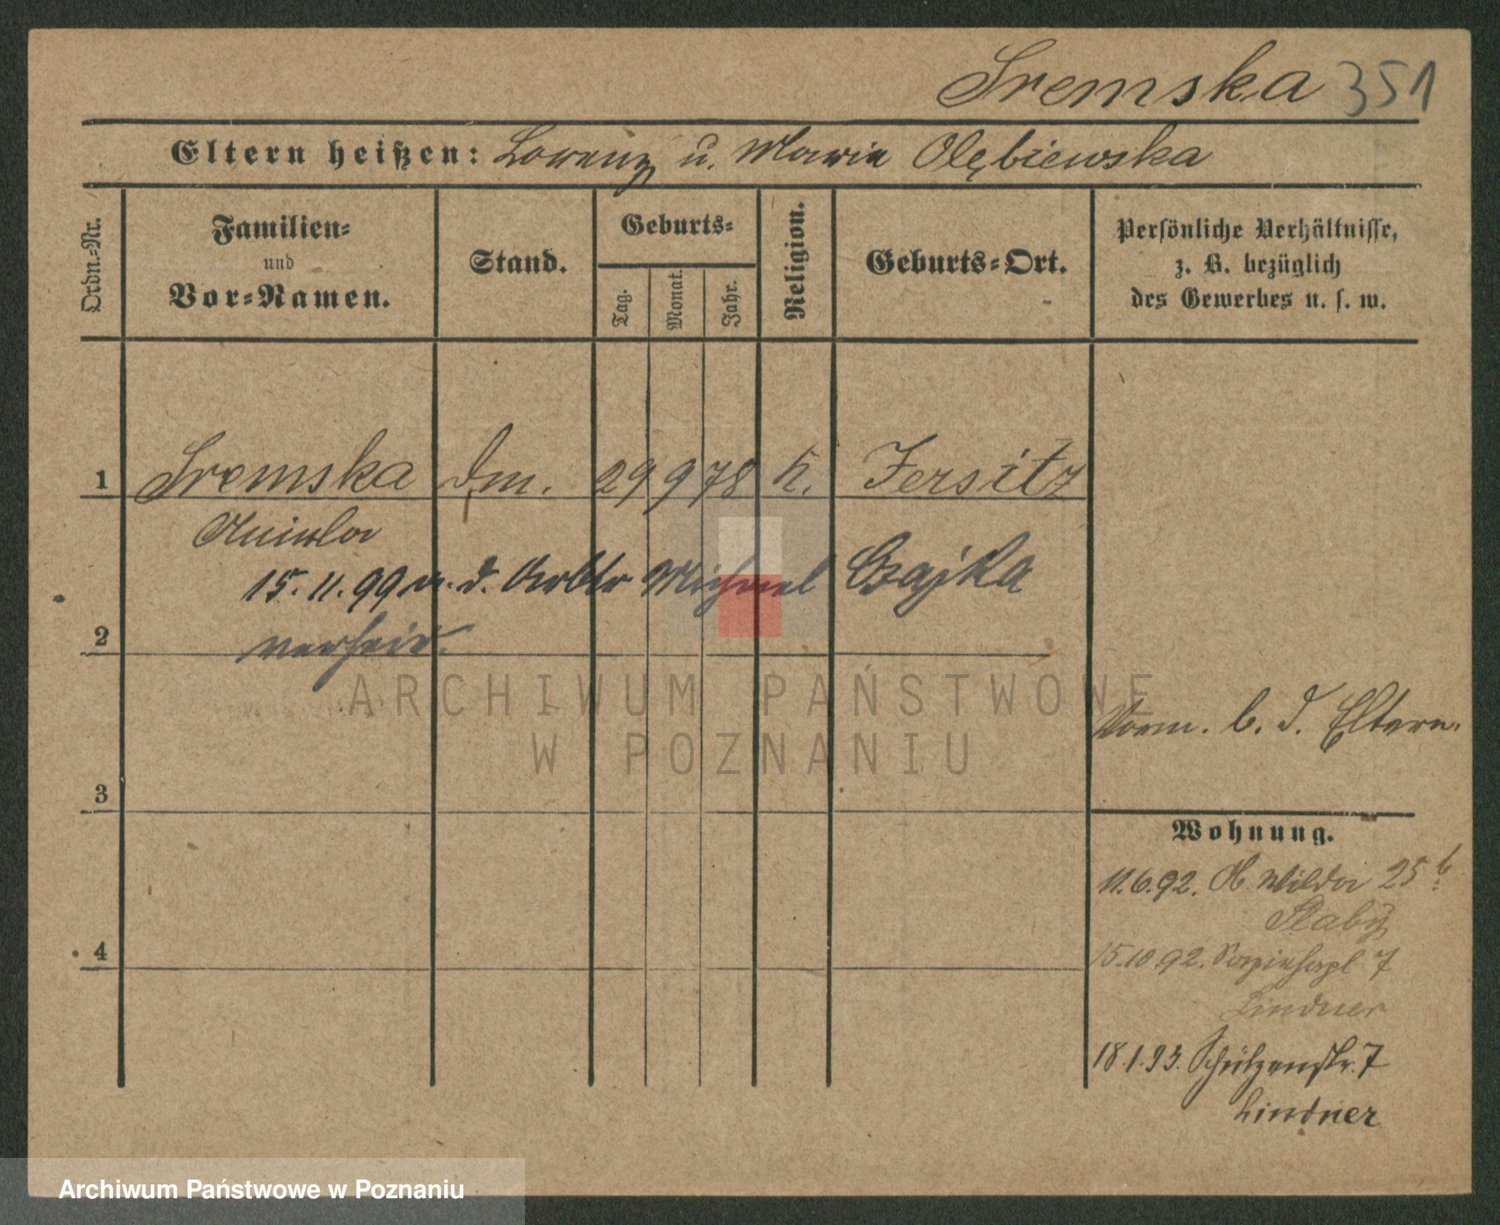 Sremska 351
Eltern heißen: Lorenz u. Marie Olębiewska
Ordn.-Nr.
Familien-
und
Vor-Namen.
Stand.
Geburts-
Tag.
Monat.
Jahr.
Religion.
Geburts-Ort.
Persönliche Verhältnisse,
z. B. bezüglich
des Gewerbes u. s. w.
1 Sremska Dm. 29 9 78 K. Jersitz
15.11.99 m. d. Arbtr Michael Czajka
2 verheir.
ARCHIWUM PAŃSTWOWE
W POZNANIU
Vorm. b. d. Eltern.
3
Wohnung.
11.6.92. Ob. Wilda 25b
Slaby
4
15.10.92. Sapiehapl. 7
Lindner
18.1.93. Schützenstr. 7
Lindner
Archiwum Państwowe w Poznaniu